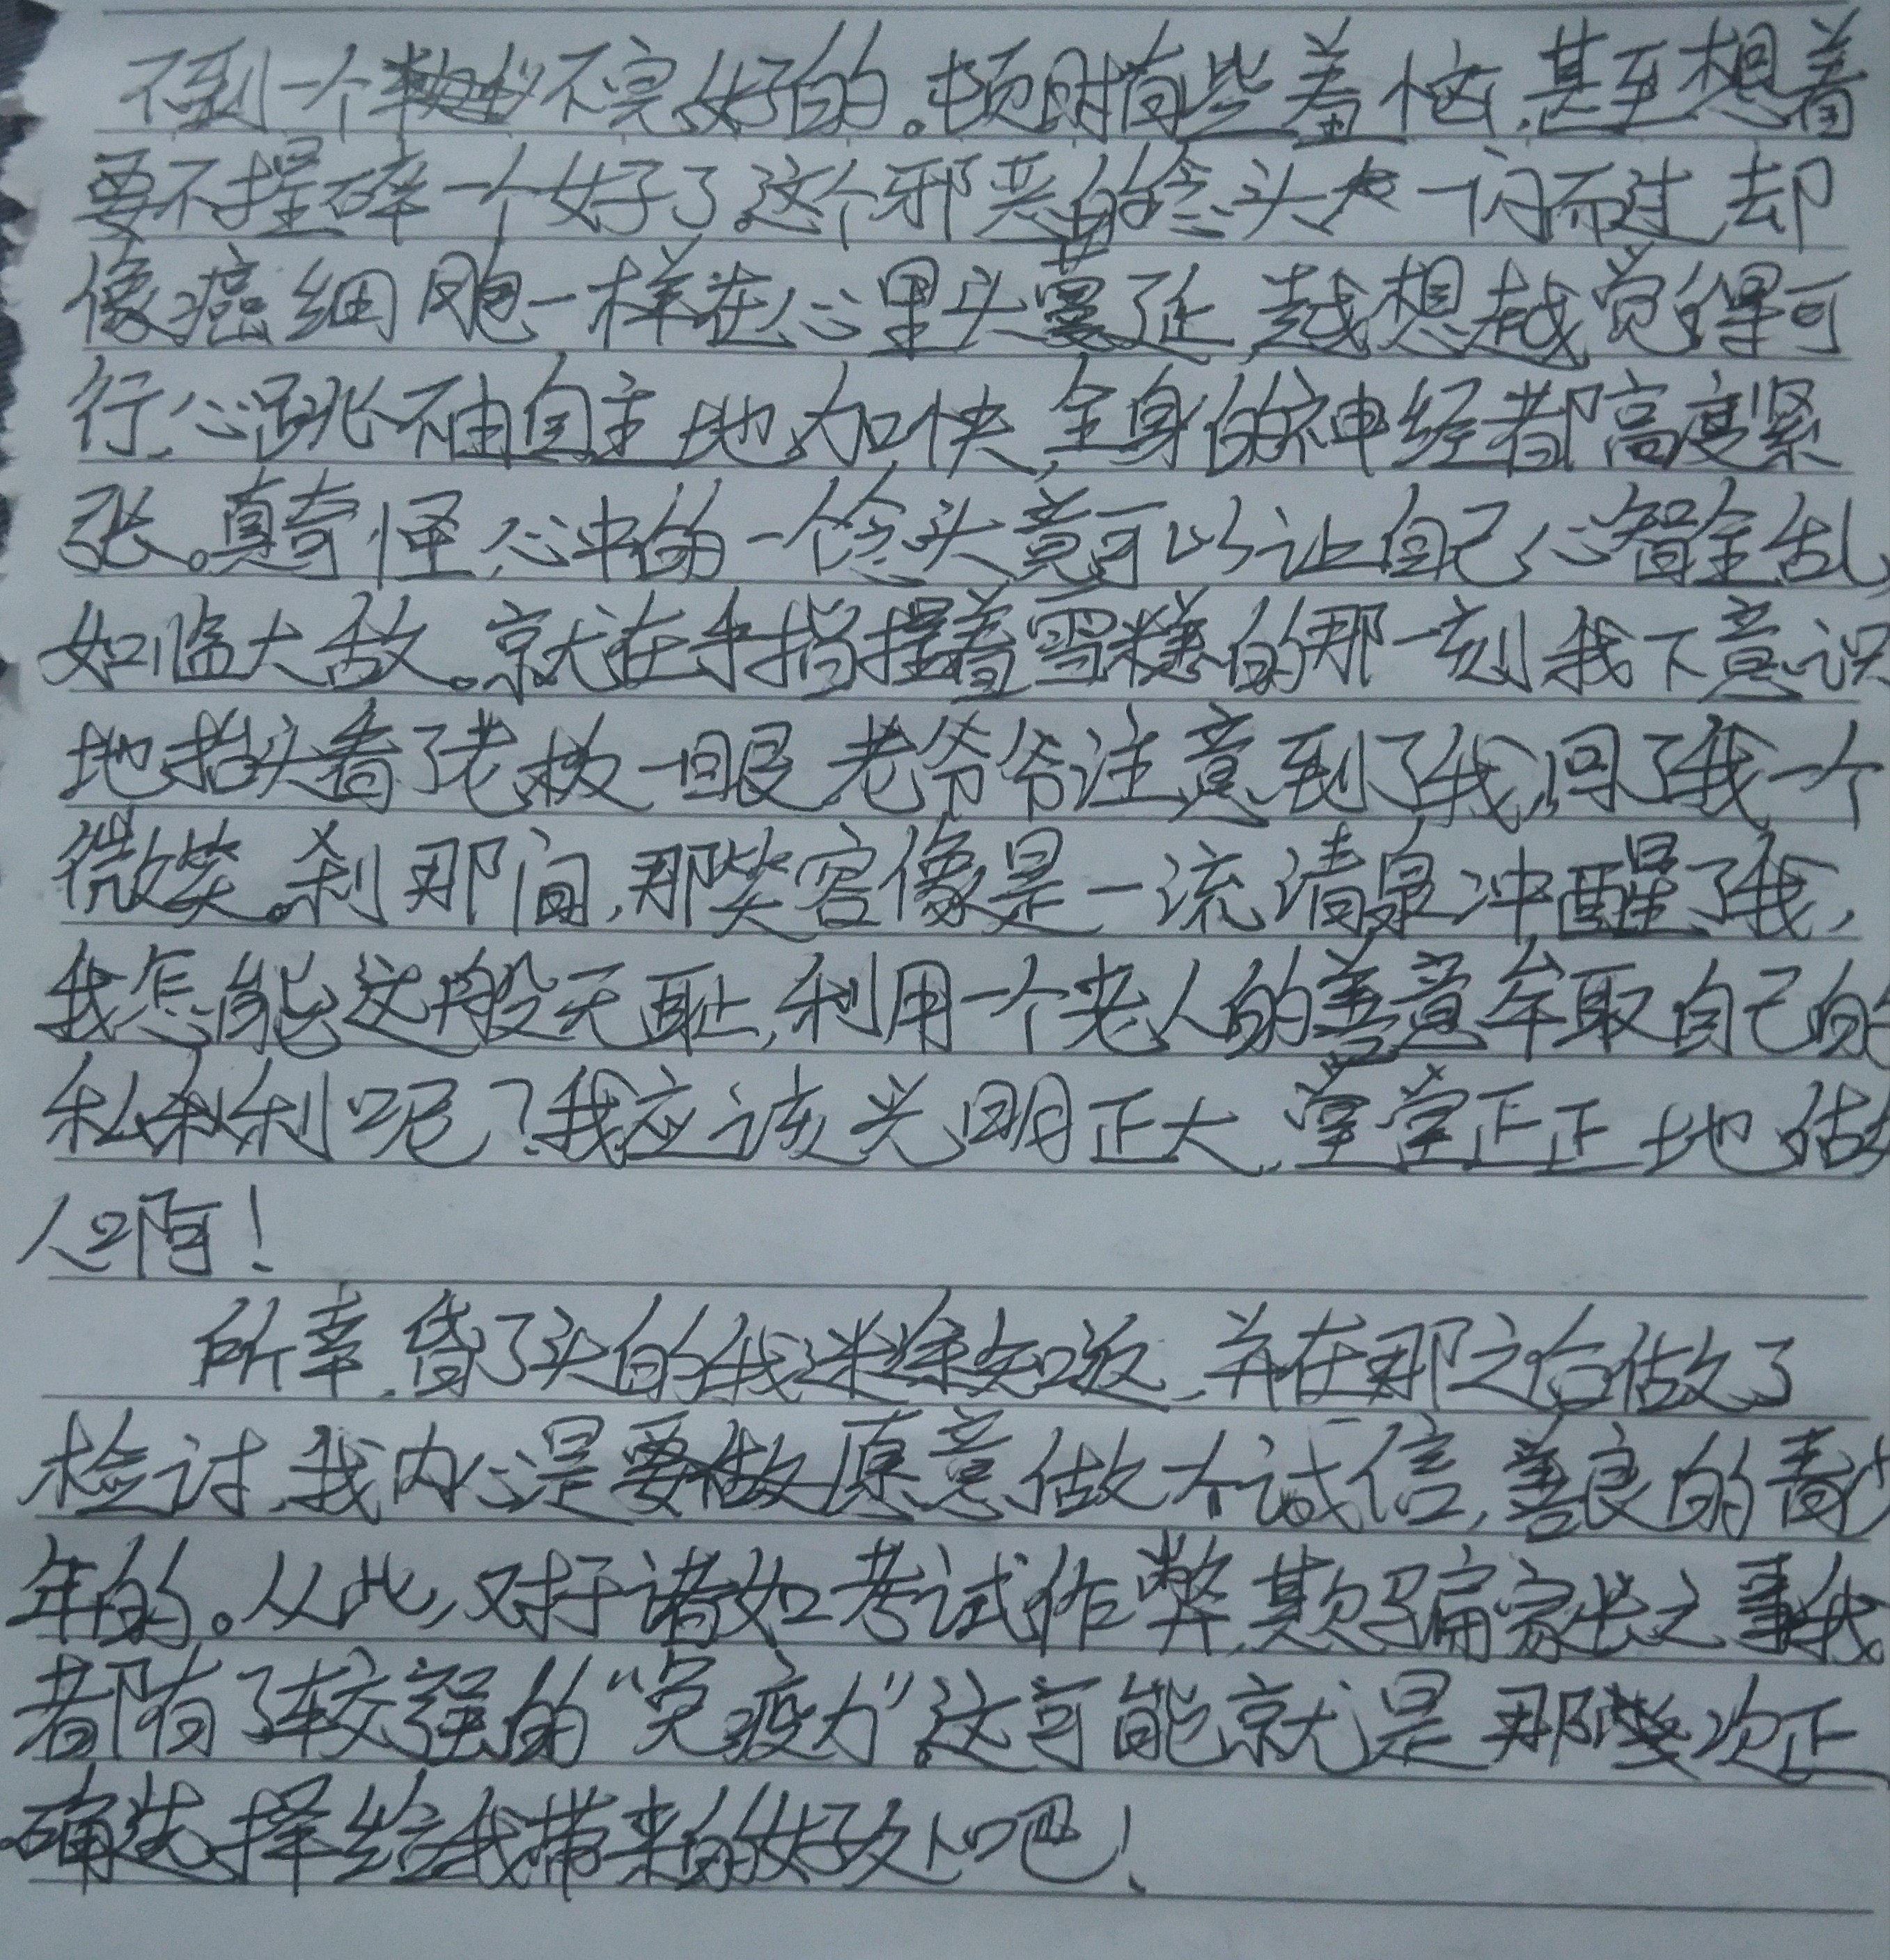 不到一个不完好的。顿时有些羞恼,甚至想着
要不捏碎一个好了。这个邪恶的念头一闪而过,却
像癌细胞一样在心里头蔓延,越想越觉得可
行,心跳不由自主地加快,全身的神经都高度紧
张。真奇怪,心中的一个念头竟可以让自己心智全乱,
如临大敌。就在手指捏着雪糕的那一刻,我下意识
地抬头看了老板一眼,老爷爷注意到了我,回了我一个
微笑。刹那间,那笑容像是一流清泉冲醒了我,
我怎能这般无耻,利用一个老人的善意牟取自己的
私利呢?我应该光明正大,堂堂正正地做
人啊!
所幸,昏了头的我迷途知返,并在那之后做了
检讨,我内心是愿意做个诚信,善良的青少
年的。从此,对于诸如考试作弊,欺骗家长之事我
都有了较强的“免疫力”。这可能就是那次正
确选择给我带来的好处吧!